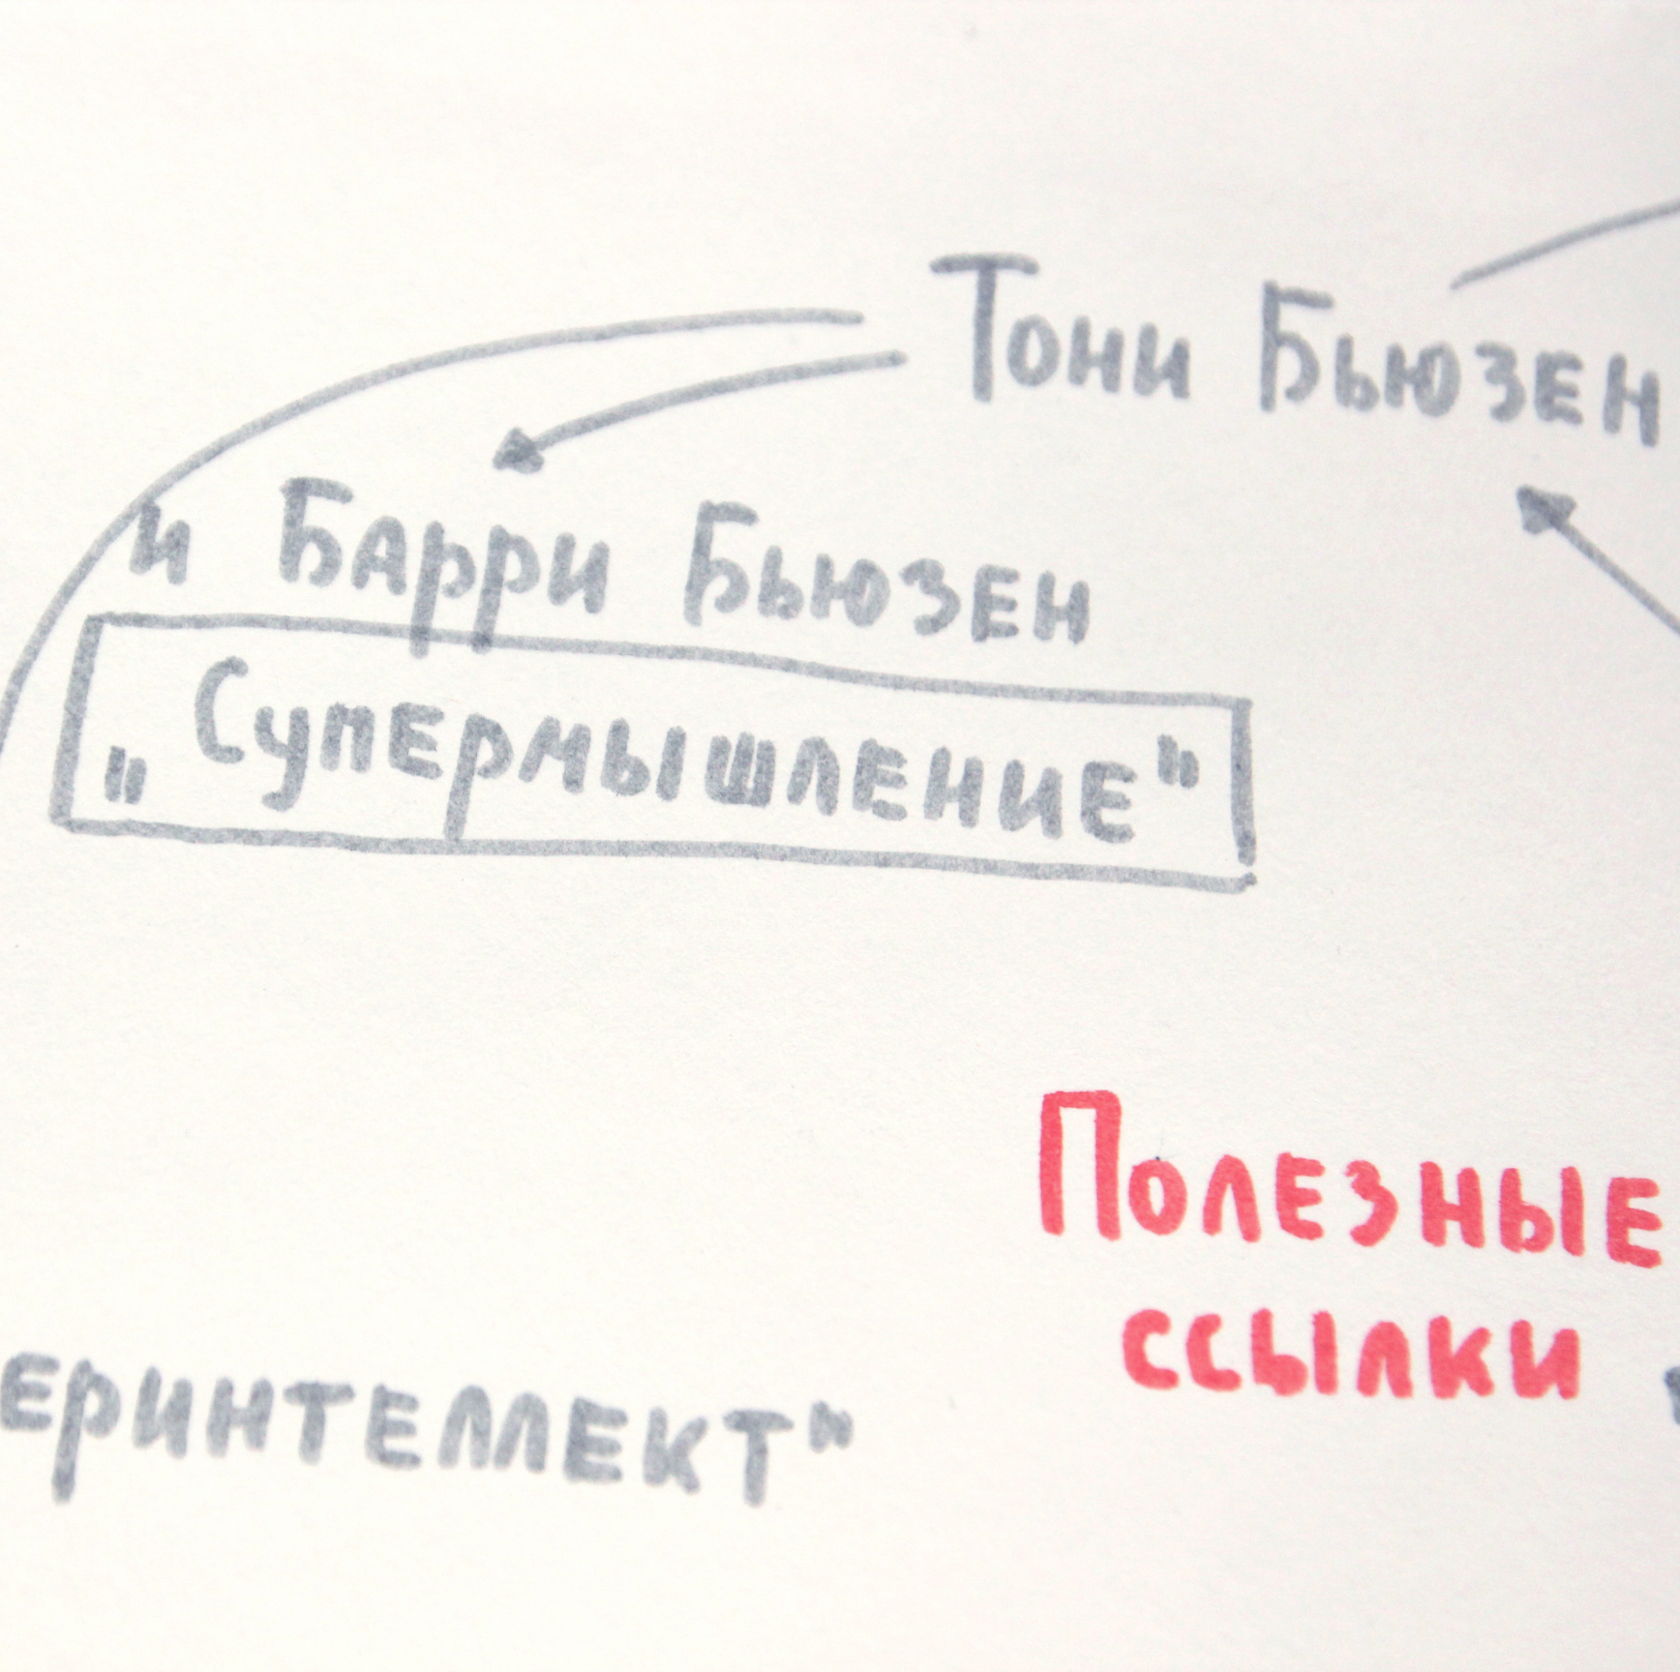 Тони Бьюзен
и Барри Бьюзен
„Супермышление"
Полезные
ссылки
еринтеллект"